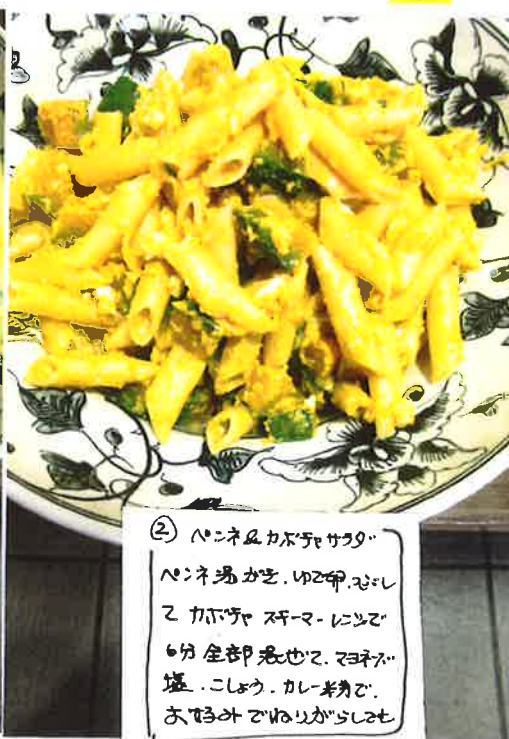 ② ペンネ&カボチャサラダ
ペンネ湯がき、ゆで卵、つぶし
て カボチャ スチーマーレンジで
6分 全部混ぜて、マヨネーズ
塩、こしょう、カレー粉で、
お好みでねりがらしても